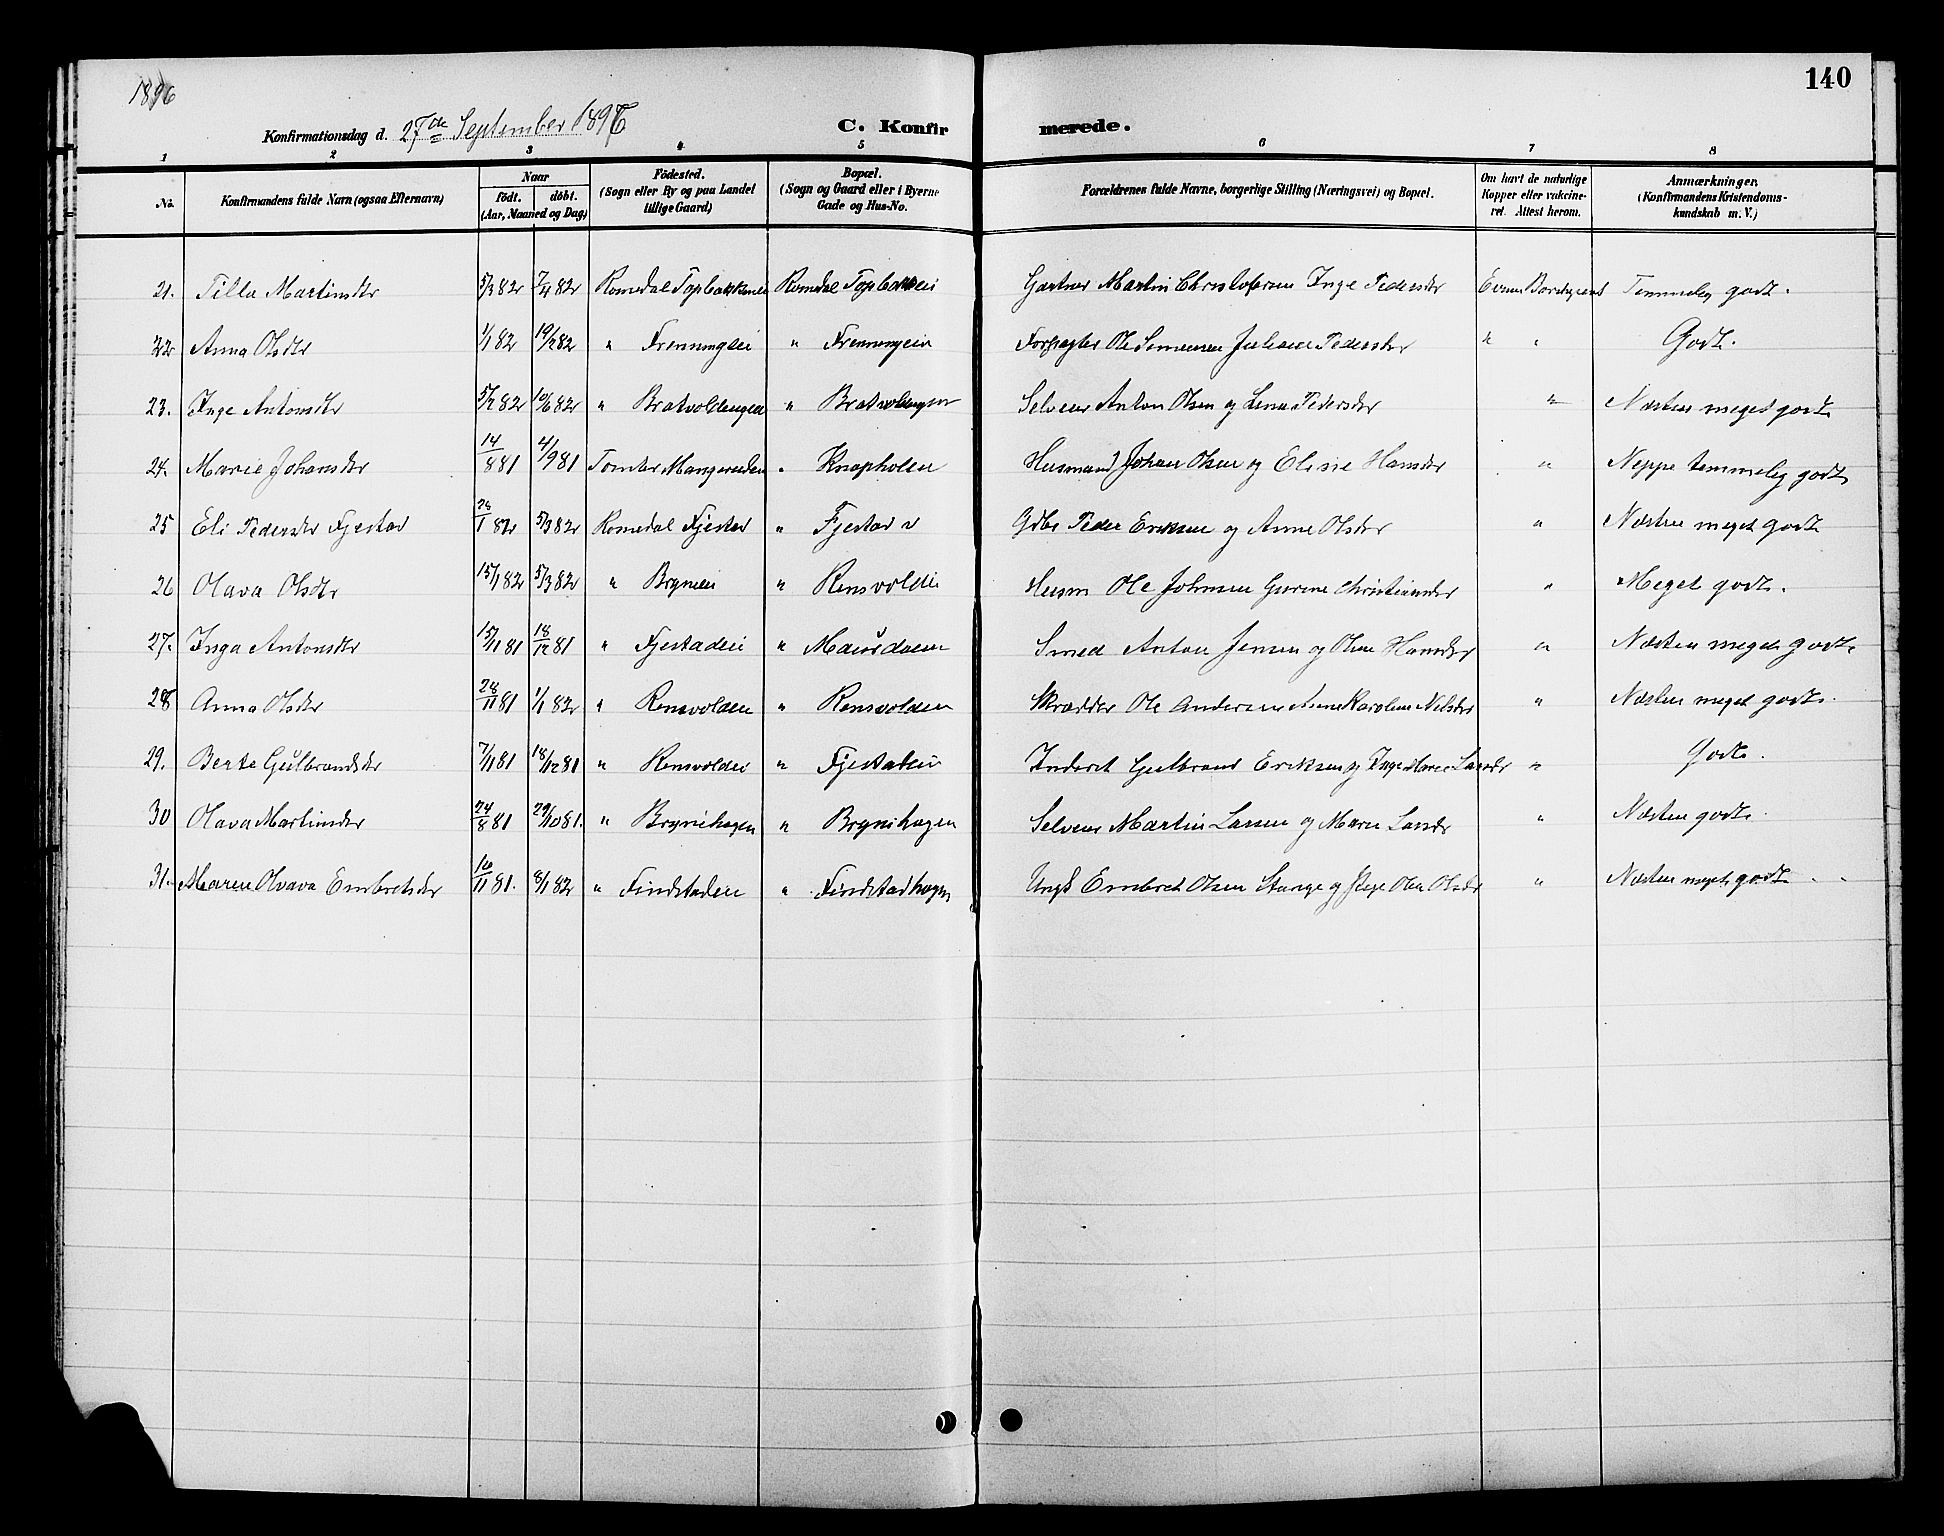 1896
140
Konfirmationsdag d. 27de September 1896
C. Konfirmerede.
1 2 3 4 5 6 7 8
No.
Konfirmandens fulde Navn (ogsaa Efternavn)
Naar
födt. döbt.
(Aar, Maaned og Dag)
Födested.
(Sogn eller By og paa Landet
tillige Gaard)
Bopæl.
(Sogn og Gaard eller i Byerne
Gade og Hus-No.
Forældrenes fulde Navne, borgerlige Stilling (Næringsvei) og Bopæl.
Om havt de naturlige
Kopper eller vakcine-
ret. Attest herom.
Anmærkninger.
(Konfirmandens Kristendoms-
kundskab m. V.)
21. Tilla Martinsdtr 5/3 82 7/4 82 Romedal Topbakkeneie Romedal Topbakeie Gartner Martin Christofersen Inge Pedersdtr Temmelig godt.
22 Anna Olsdtr 1/1 82 19/2 82 " Frenningeie " Frenningeie Forpagter Ole Simensen Juliane Pedersdtr " " Godt.
23. Inge Antonsdtr 5/2 82 10/6 82 " Bratvoldengen " Bratvoldengen Selveier Anton Olsen og Lena Pedersdtr " Næsten meget godt
24. Marie Johansdtr 14/8 81 4/9 81 Tomter Mangeruden " Knapholen Husmand Johan Olsen og Eline Hansdtr " Neppe temmelig godt
25 Eli Pedersdtr Fjestad 28/1 82 5/3 82 Romedal Fjestad " Fjestad v Gdbr Peder Eriksen og Anne Olsdtr " Næsten meget godt
26 Olava Olsdtr 15/1 82 5/3 82 " Bryneie " Rensvoldeie Husm Ole Johnsen Gurine Christiansdtr " Meget godt.
27. Inga Antonsdtr 15/11 81 18/12 81 " Fjestadeie " Maursdalen Smed Anton Jensen og Oline Hansdtr " Næsten meget godt.
28 Anna Olsdtr 28/11 81 1/1 82 " Rensvolden " Rensvolden Skrædder Ole Andersen Anne Karoline Nilsdtr " Næsten meget godt.
29. Berte Gulbrandsdtr 7/11 81 18/12 81 " Rensvoldeie " Fjestadeie Inderst Gulbrand Eriksen og Inge Marie Larsdr " Godt.
30 Olava Martinsdtr 24/8 81 29/10 81. " Brynihagen " Brynihagen Selveier Martin Larsen og Maren Larsdr " Næsten godt.
31. Maren Olvava Embretsdtr 16/11 81. 8/1 82 " Findstadeie " Findstadhagen Ungk Embret Olsen Stange og Pige Olea Olsdr " Næsten meget godt